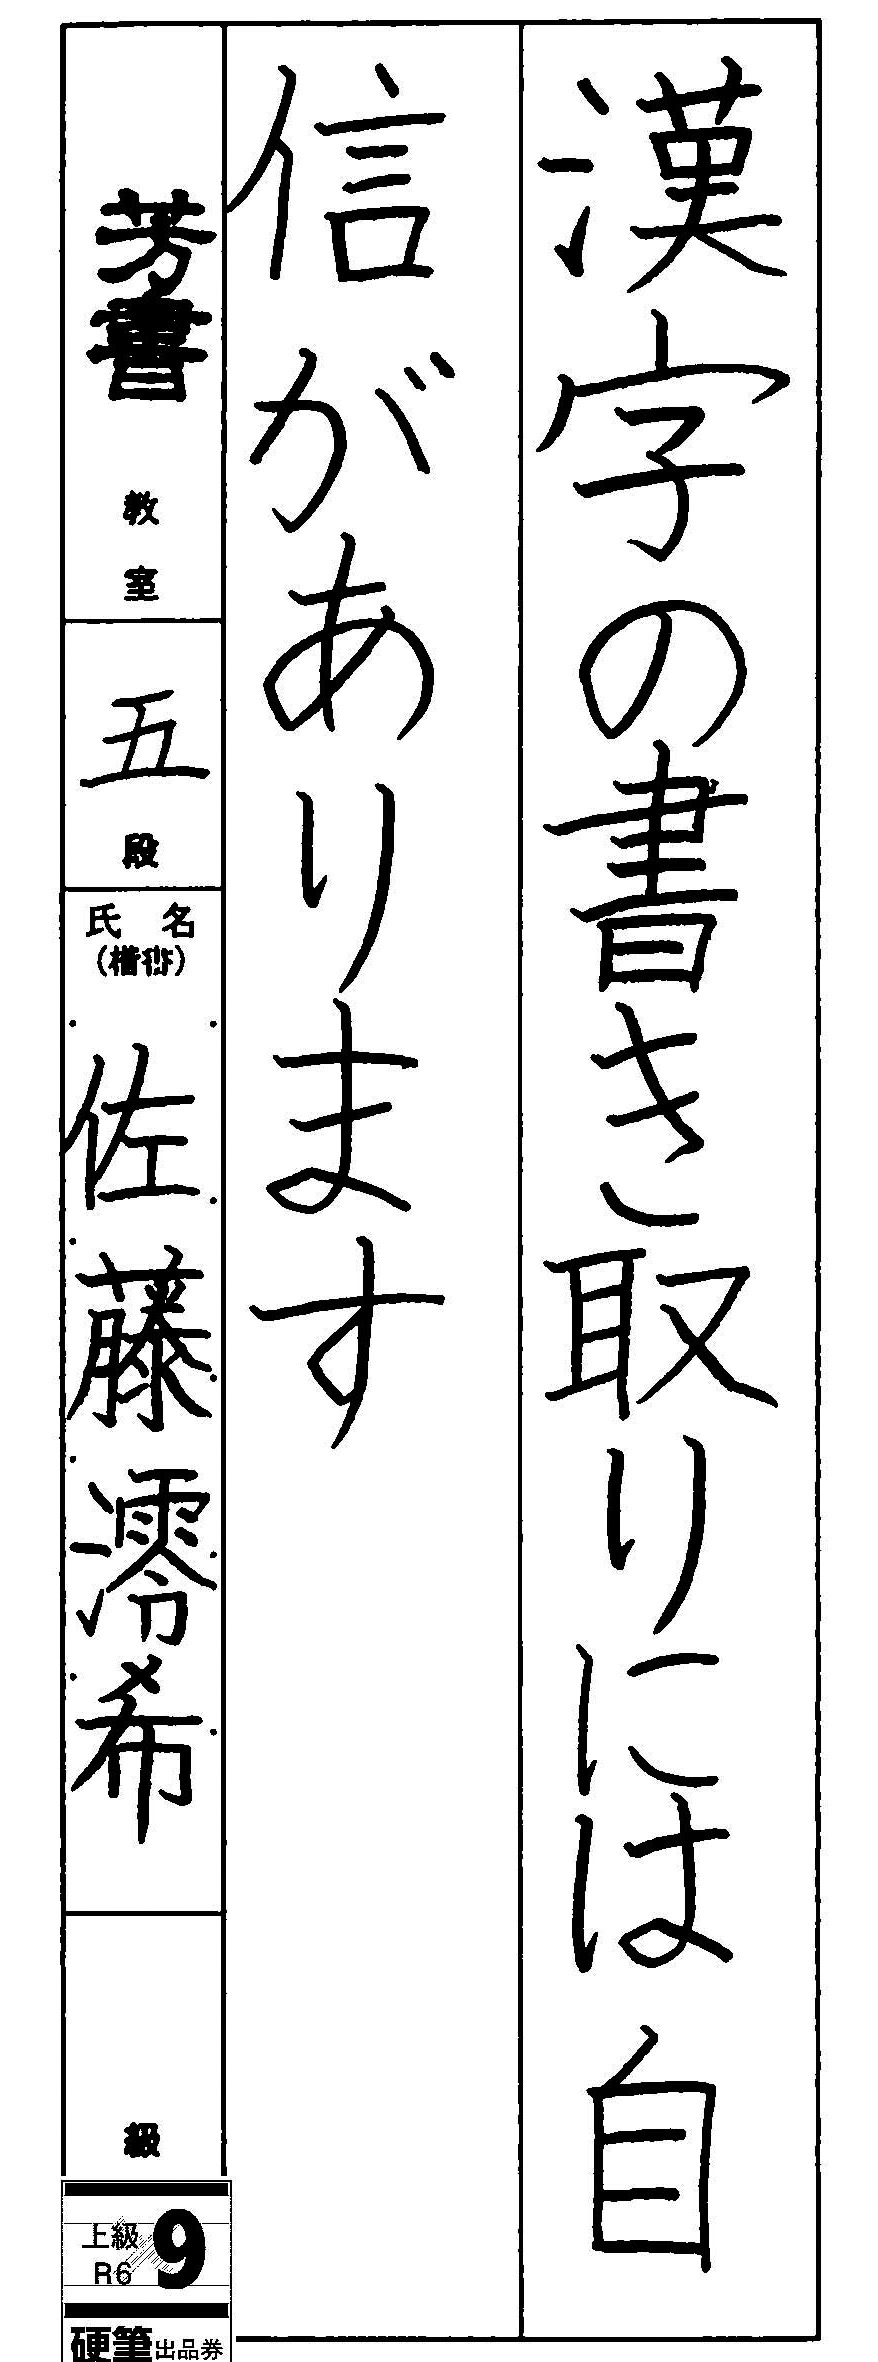 漢字の書き取りには自
信があります
芳書教室
五段
氏名
(楷書)
佐藤澪希
級
上級
R6
9
硬筆出品券